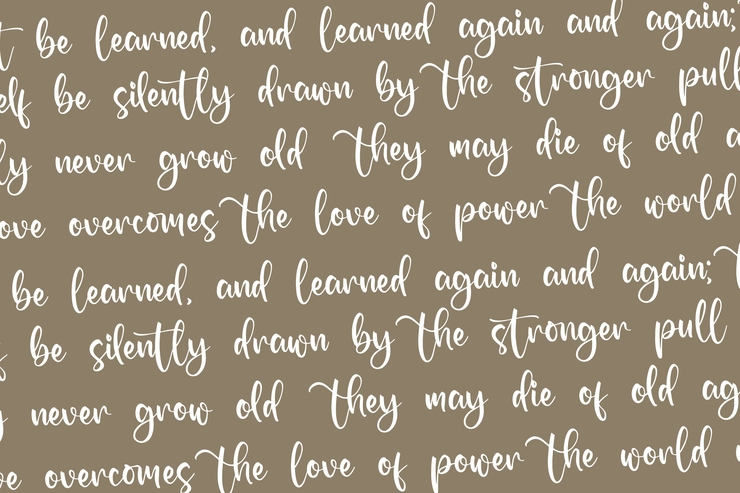 be learned, and learned again and again;
be silently drawn by the stronger pull
never grow old they may die of old
overcomes the love of power the world
be learned, and learned again and again;
be silently drawn by the stronger pull
never grow old they may die of old
overcomes the love of power the world